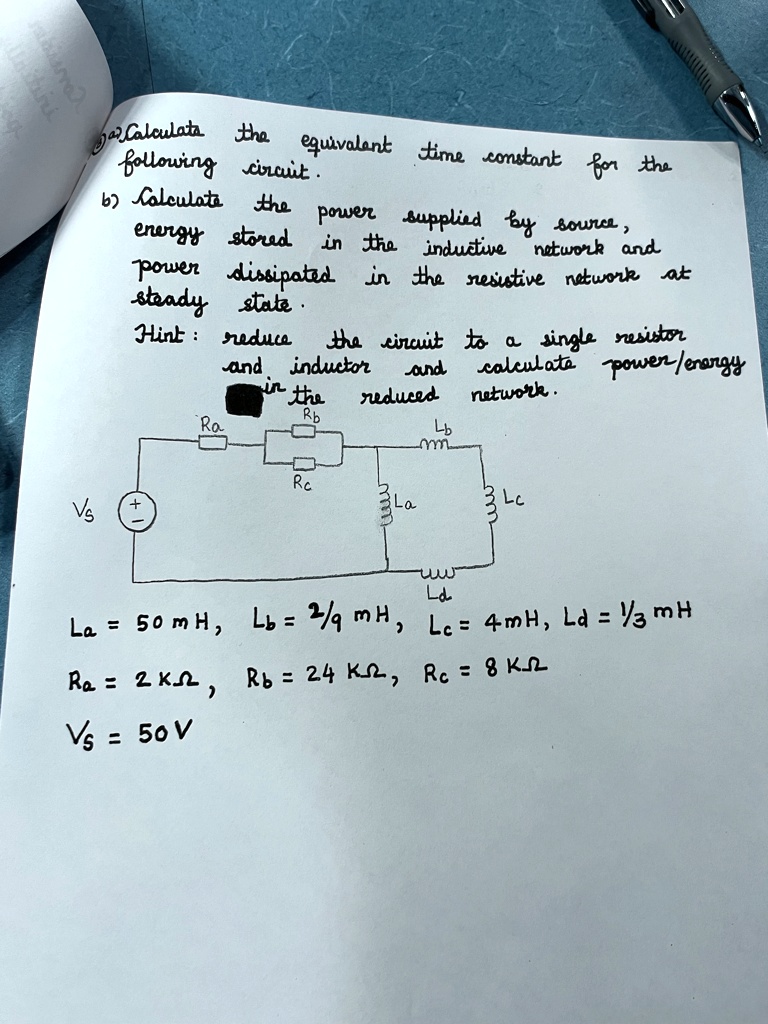 a) Calculate the equivalent time constant for the
following circuit.
b) Calculate the power supplied by source,
energy stored in the inductive network and
power dissipated in the resistive network at
steady state.
Hint : reduce the circuit to a single resistor
and inductor and calculate power/energy
in the reduced network.
Ra
Rb
Lb
Rc
Vs
+
−
La
Lc
Ld
La = 50 mH, Lb = 2/9 mH, Lc = 4mH, Ld = 1/3 mH
Ra = 2 KΩ, Rb = 24 KΩ, Rc = 8 KΩ
Vs = 50V